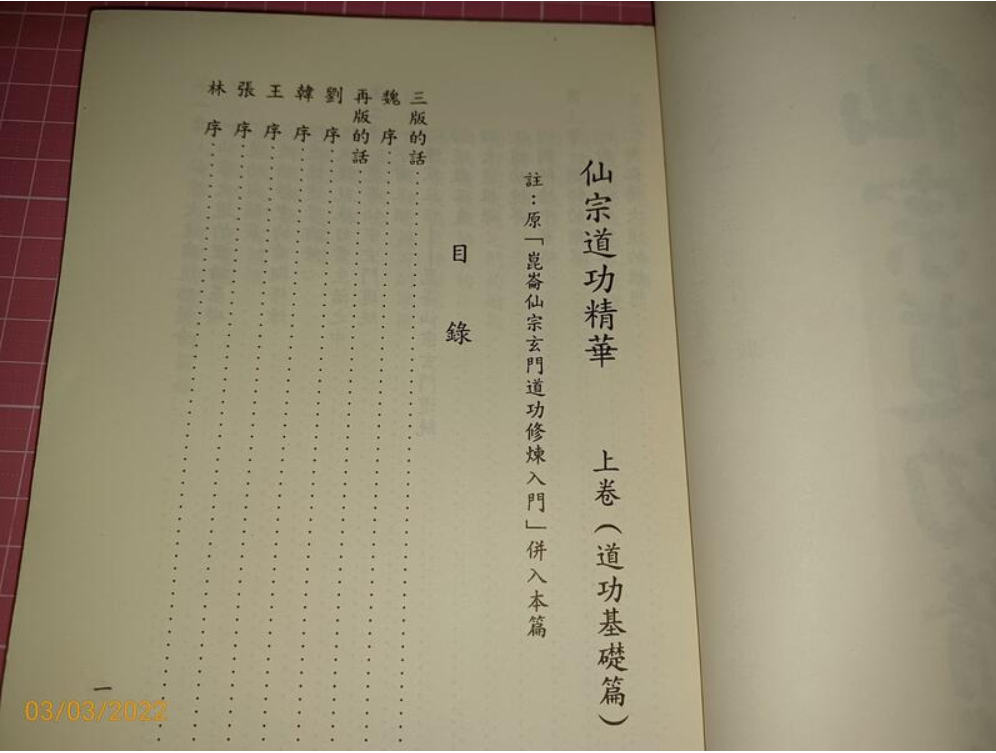 仙宗道功精華　上卷（道功基礎篇）
註：原「崑崙仙宗玄門道功修煉入門」併入本篇
目錄
三版的話
魏序
再版的話
劉序
韓序
王序
張序
林序
一
03/03/2022